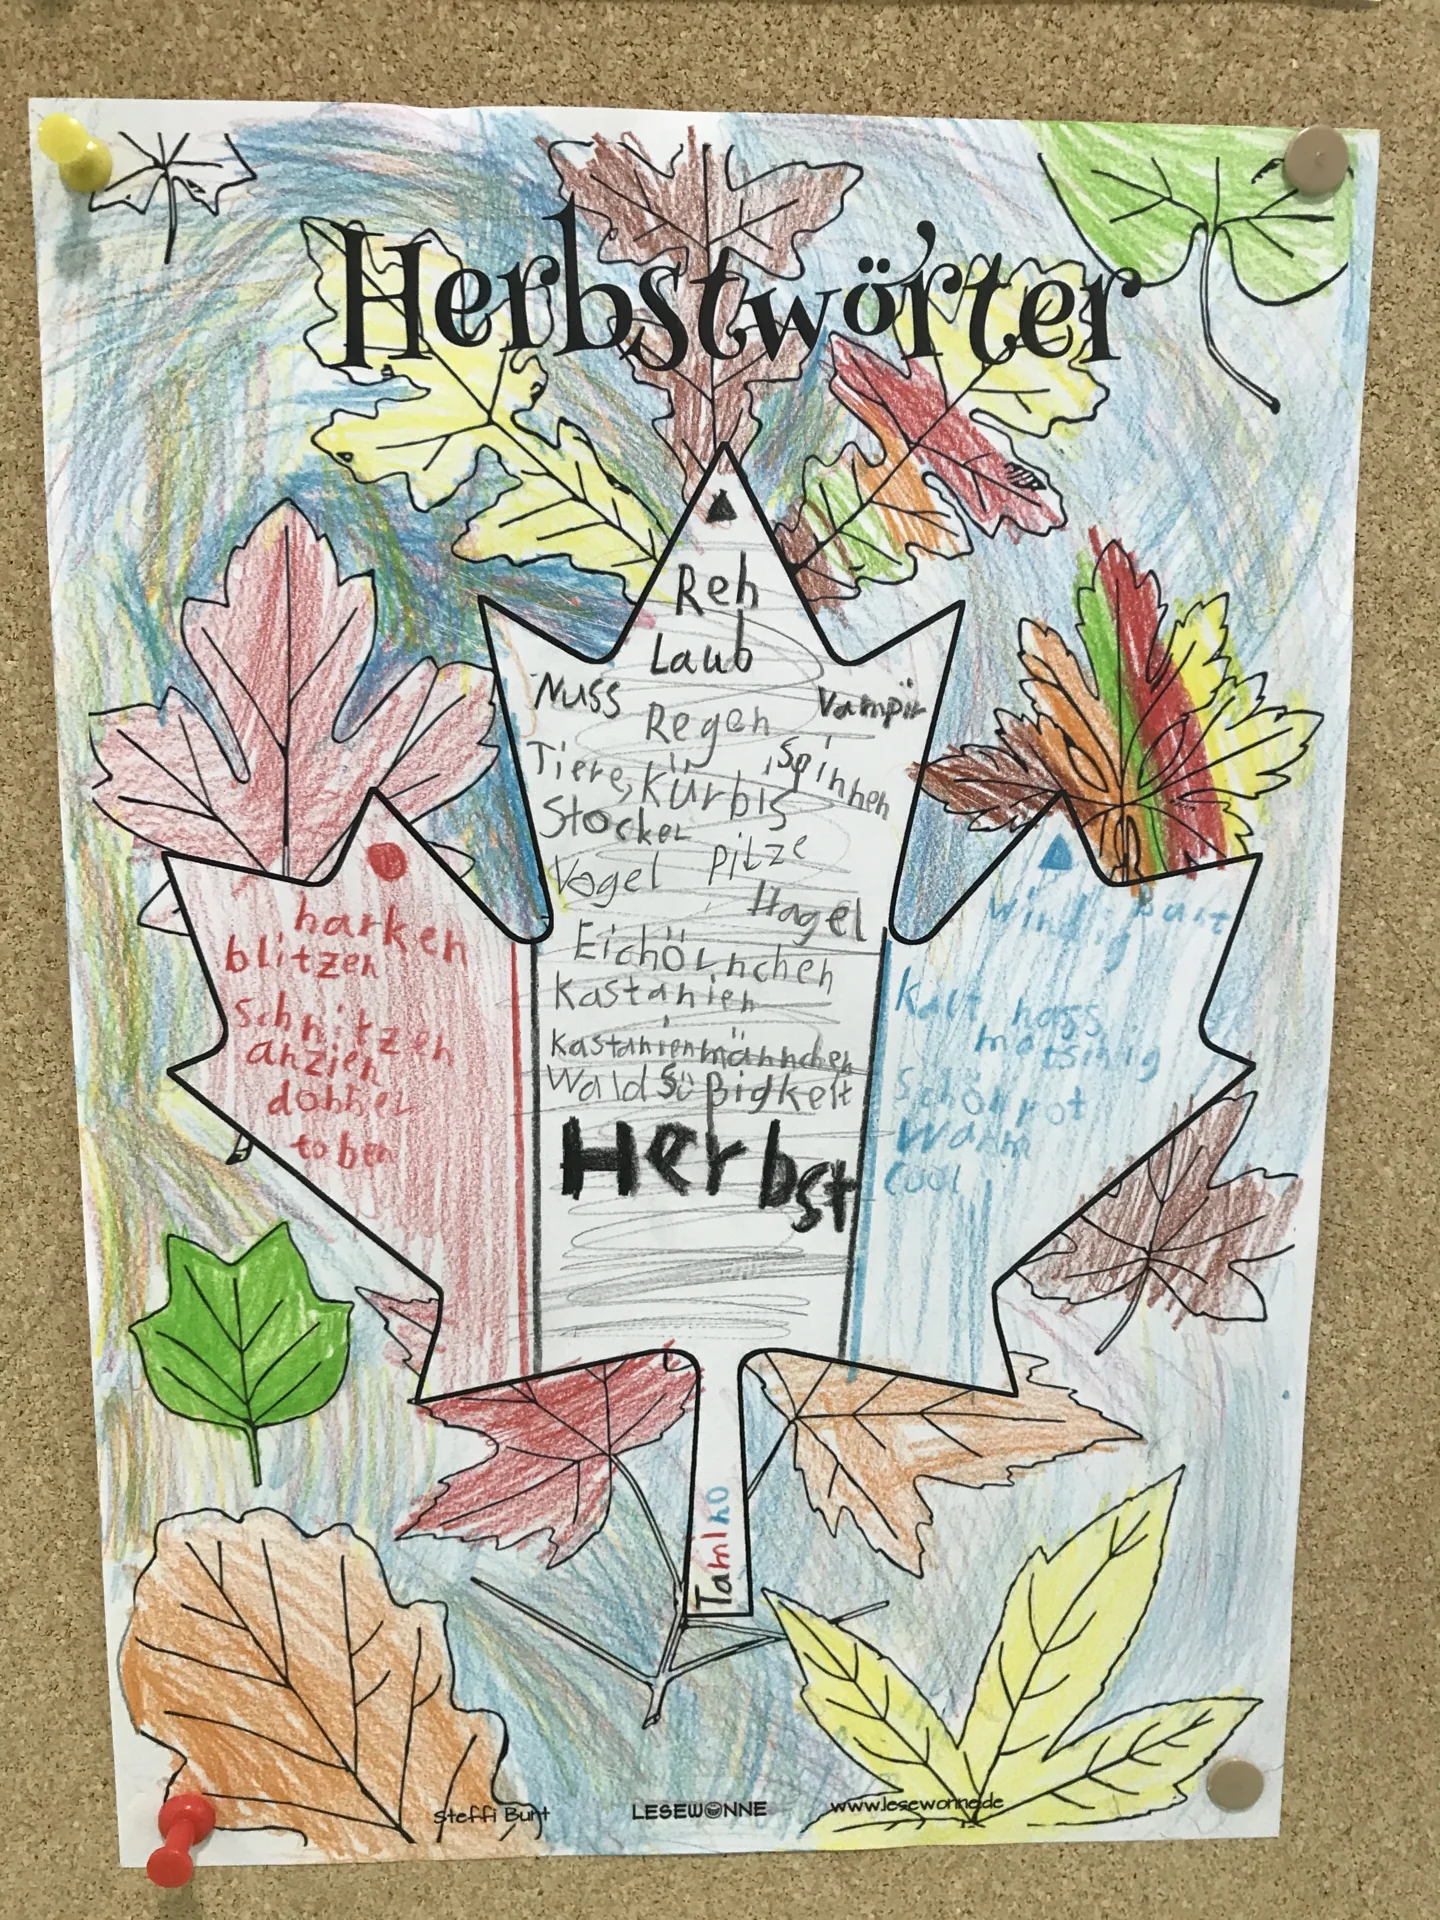 Herbstwörter
Reh
Laub
Nuss
Vampir
Regen
Tiere, Kürbis
Spinnen
Stocker
Vogel
Pilze
Hagel
Eichörnchen
Kastanien
Kastanienmännchen
Wald Süßigkeit
Herbst
harken
blitzen
schnitzen
anzien
donner
toben
windig
bunt
kalt nass
matschig
schön rot
warm
cool
Tamino
Steffi Bunt
LESEWONNE
www.lesewonne.de